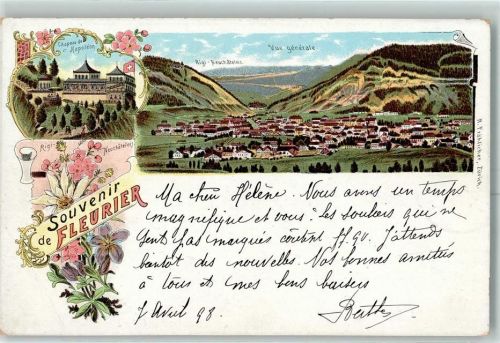 Chapeau de
Napoléon
Rigi-Neuchâtelois
Vue générale
Rigi-
Neuchâtelois
R. Fröhlicher, Zürich.
Souvenir
de FLEURIER
Ma chère Hélène. Nous avons un temps
magnifique et vous. les souliers qui ne
sont pas marqués coûtent 17.90. J'attends
bientôt des nouvelles. Nos bonnes amitiés
à tous et mes bons baisers
7 Avril 98. Berthe